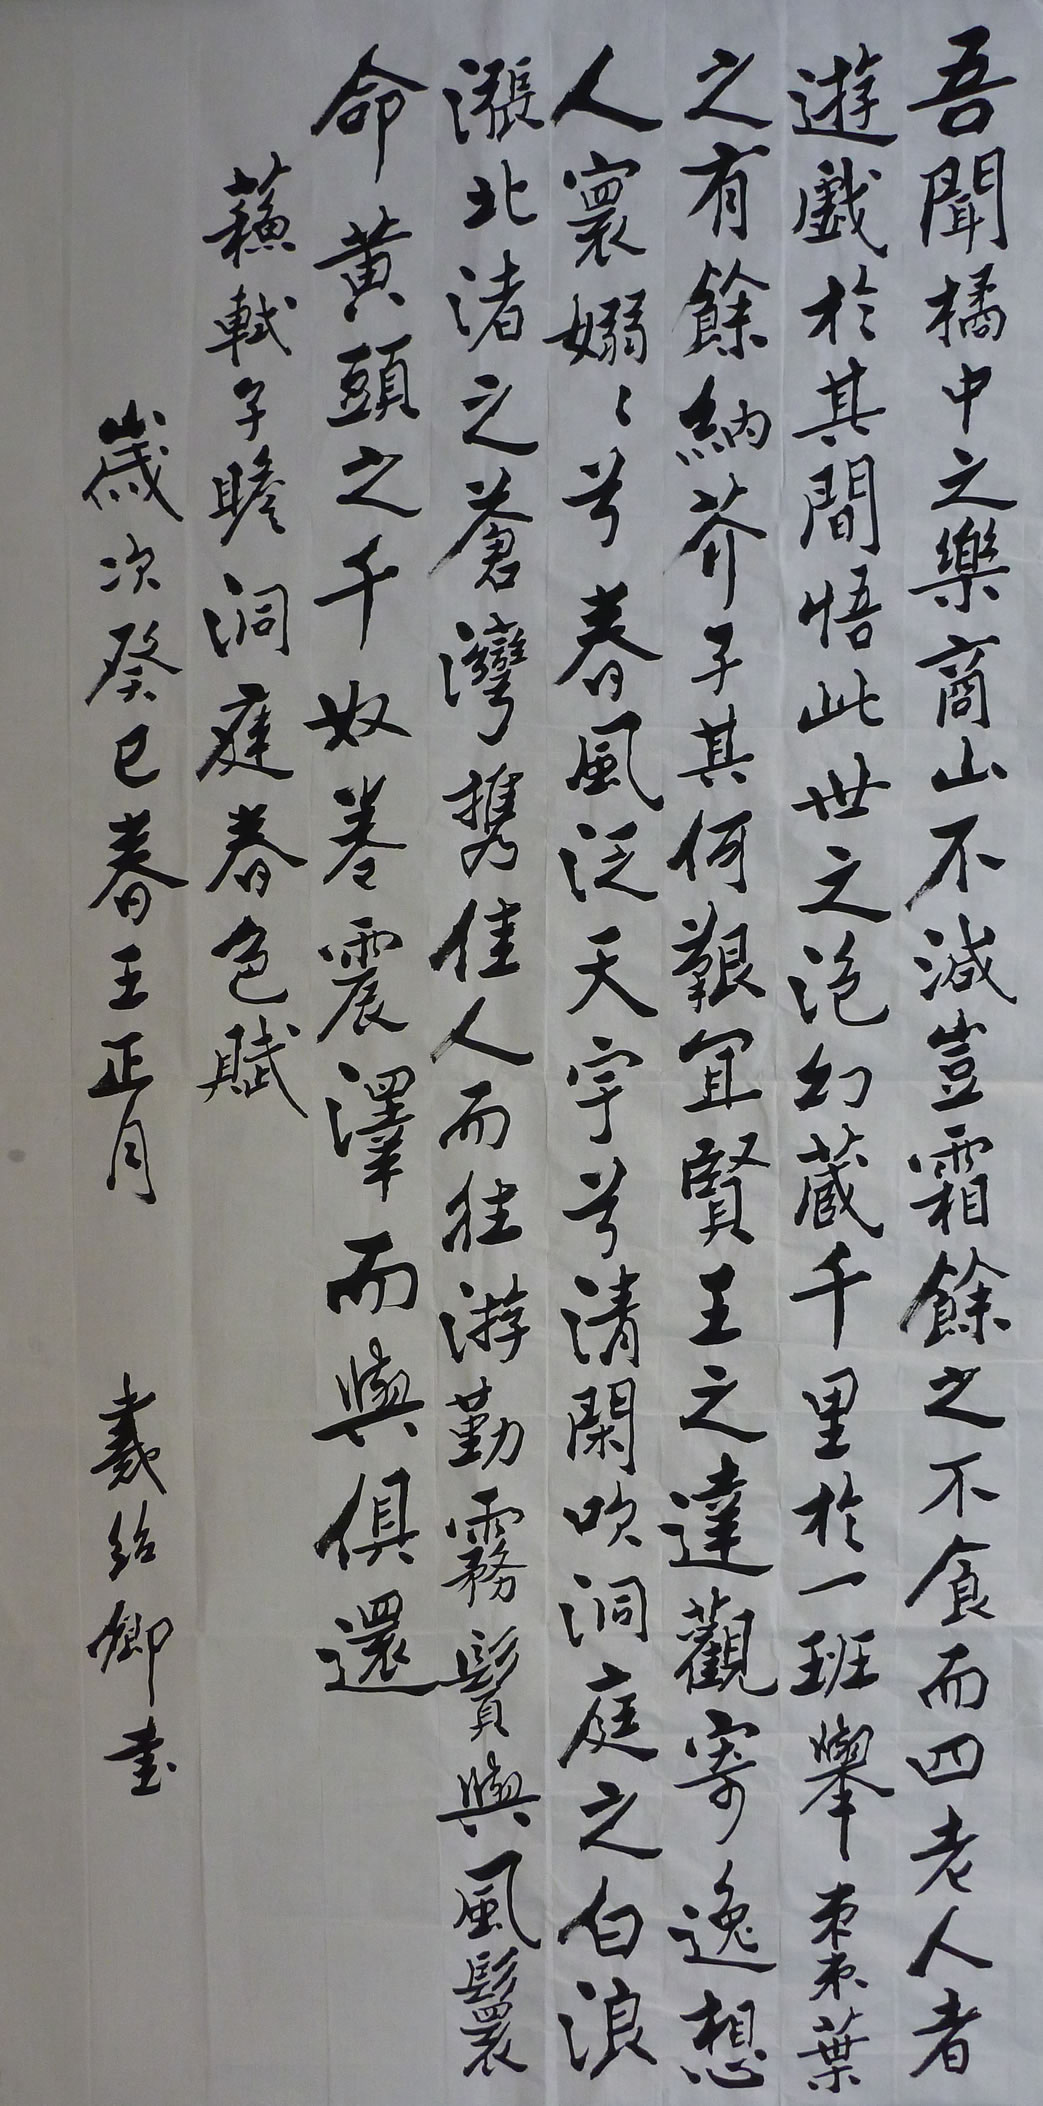 吾聞橘中之樂商山不減豈霜餘之不食而四老人者
遊戲於其間悟此世之泡幻藏千里於一班舉棗葉
之有餘納芥子其何艱宜賢王之達觀寄逸想
人寰嫋〻兮春風泛天宇兮清閑吹洞庭之白浪
漲北渚之蒼灣攜佳人而往游勤霧鬢與風鬟
命黃頭之千奴卷震澤而與俱還
蘇軾子瞻洞庭春色賦
歲次癸巳春王正月 戴紹卿書